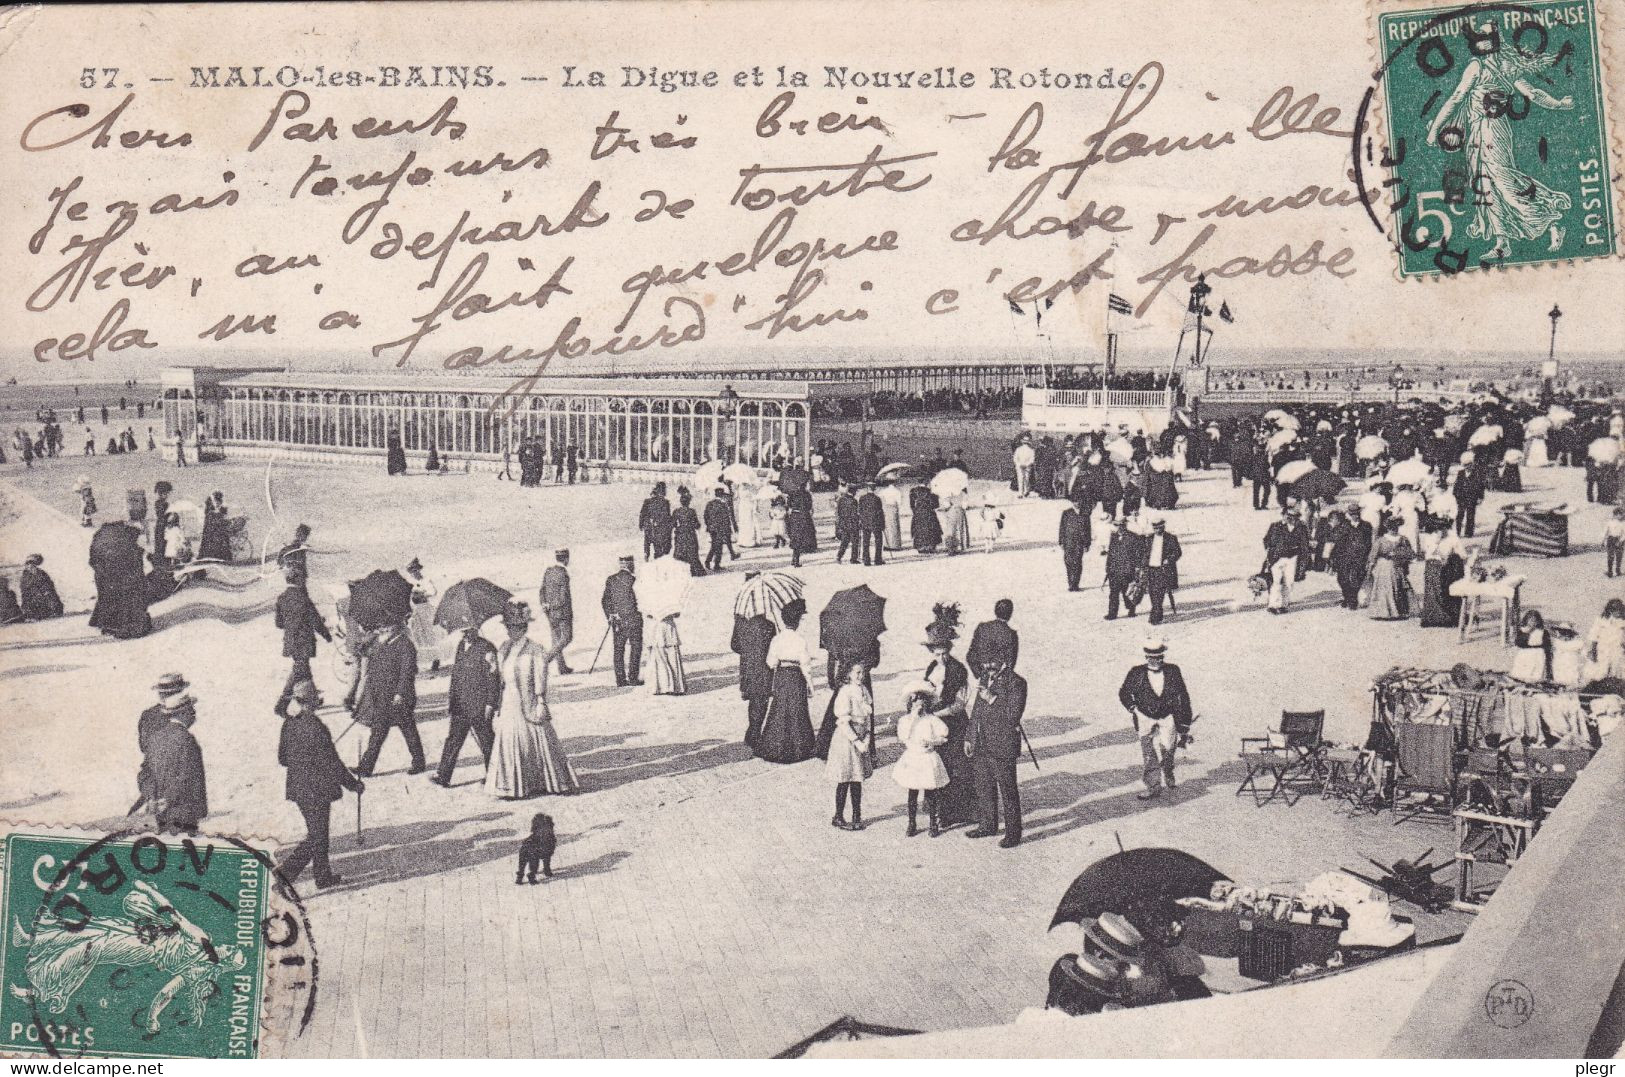 57. — MALO-les-BAINS. — La Digue et la Nouvelle Rotonde.
Chers Parents
Je vais toujours très bien —
Hier, au départ de toute la famille
cela m'a fait quelque chose, mais
aujourd'hui c'est passé
REPUBLIQUE FRANÇAISE
5c
POSTES
NORD
09
5c
REPUBLIQUE FRANÇAISE
POSTES
NORD
PTD
plegr